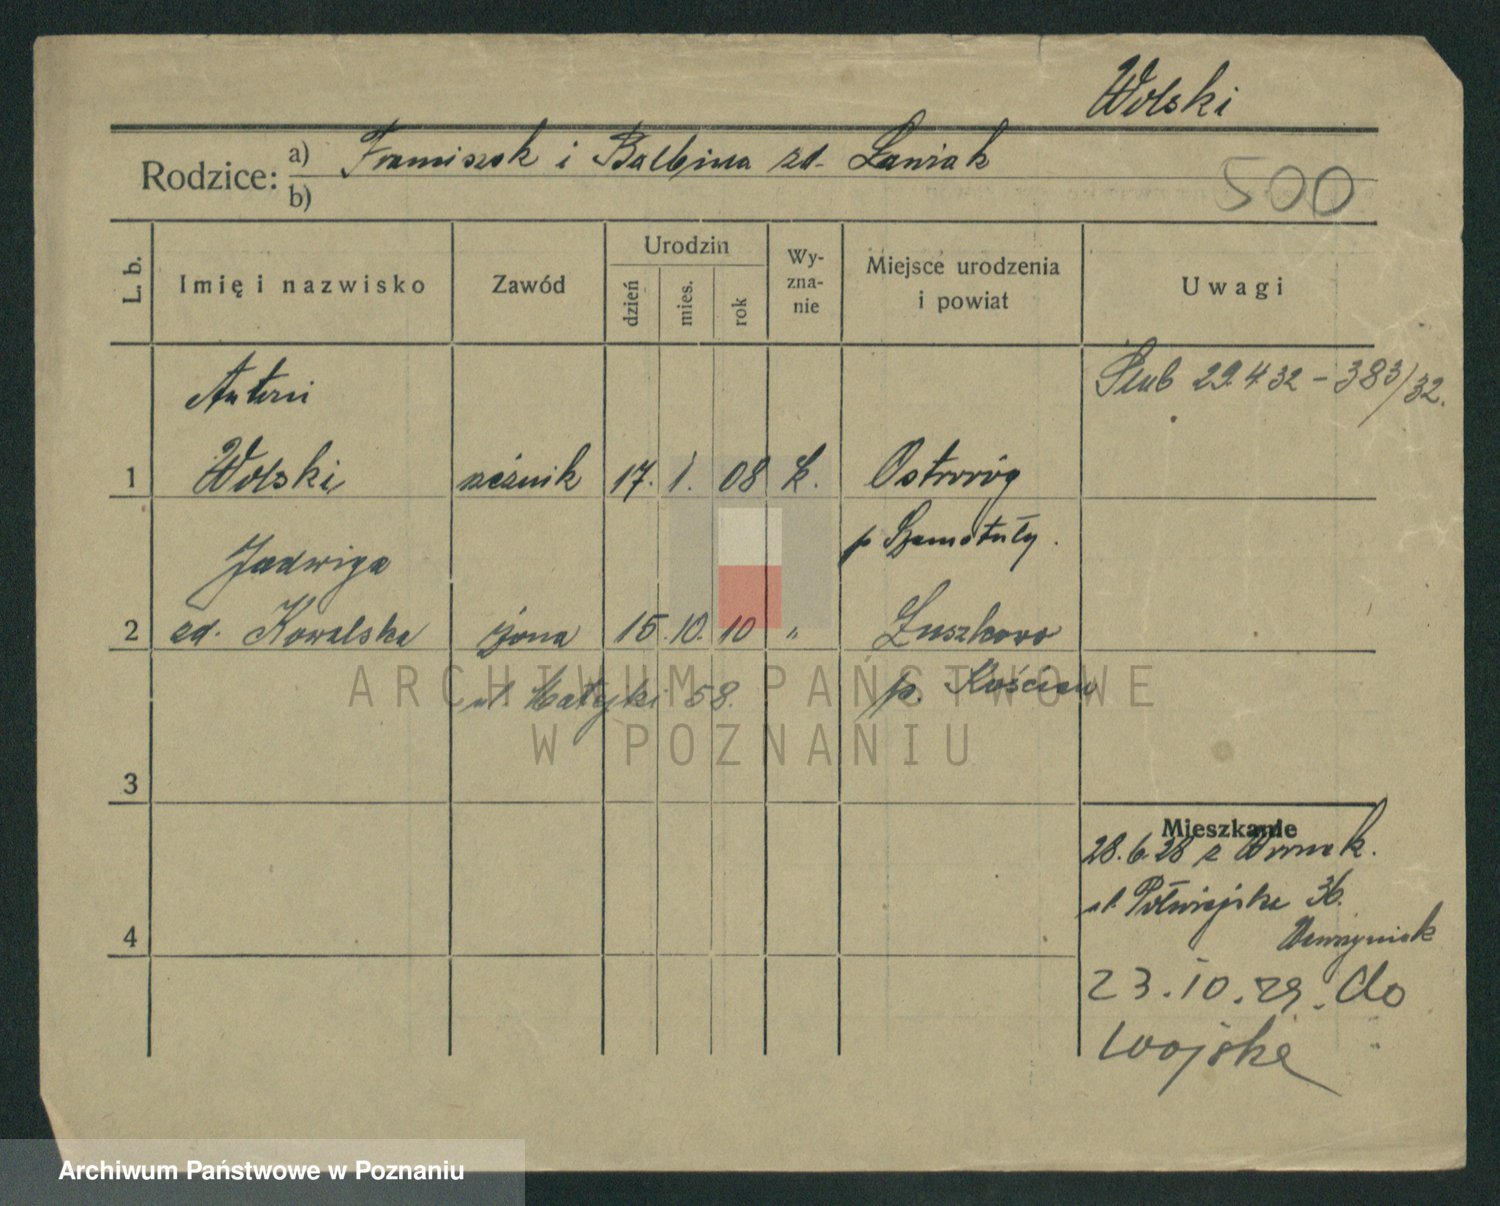 Wolski
Rodzice: a) Franciszek i Balbina zd. Łaniak
b)
500
L. b. Imię i nazwisko Zawód Urodzin dzień mies. rok Wyznanie Miejsce urodzenia i powiat Uwagi
Antoni
Ślub 29.4 32 – 383/32.
1 Wolski rzeźnik 17. 1. 08 k. Ostroróg
p Szamotuły.
Jadwiga
2 zd. Kowalska żona 15. 10. 10 " Łuszkowo
ul. Matejki 58. p. Kościan
ARCHIWUM PAŃSTWOWE
W POZNANIU
3
Mieszkanie
28.6.28 z Wronek.
ul. Półwiejska 36.
4
Wawrzyniak
23.10.29. do
wojska
Archiwum Państwowe w Poznaniu